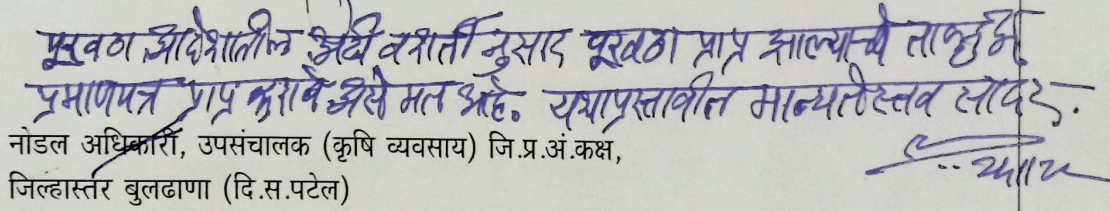 पुरवठा आदेशातील अटी व शर्ती नुसार पुरवठा प्राप्त झाल्याचे
प्रमाणपत्र प्राप्त करावे असे मत आहे. यथाप्रस्तावित मान्यतेस्तव सादर.
नोडल अधिकारी, उपसंचालक (कृषि व्यवसाय) जि.प्र.अं.कक्ष,
जिल्हास्तर बुलढाणा (दि.स.पटेल)